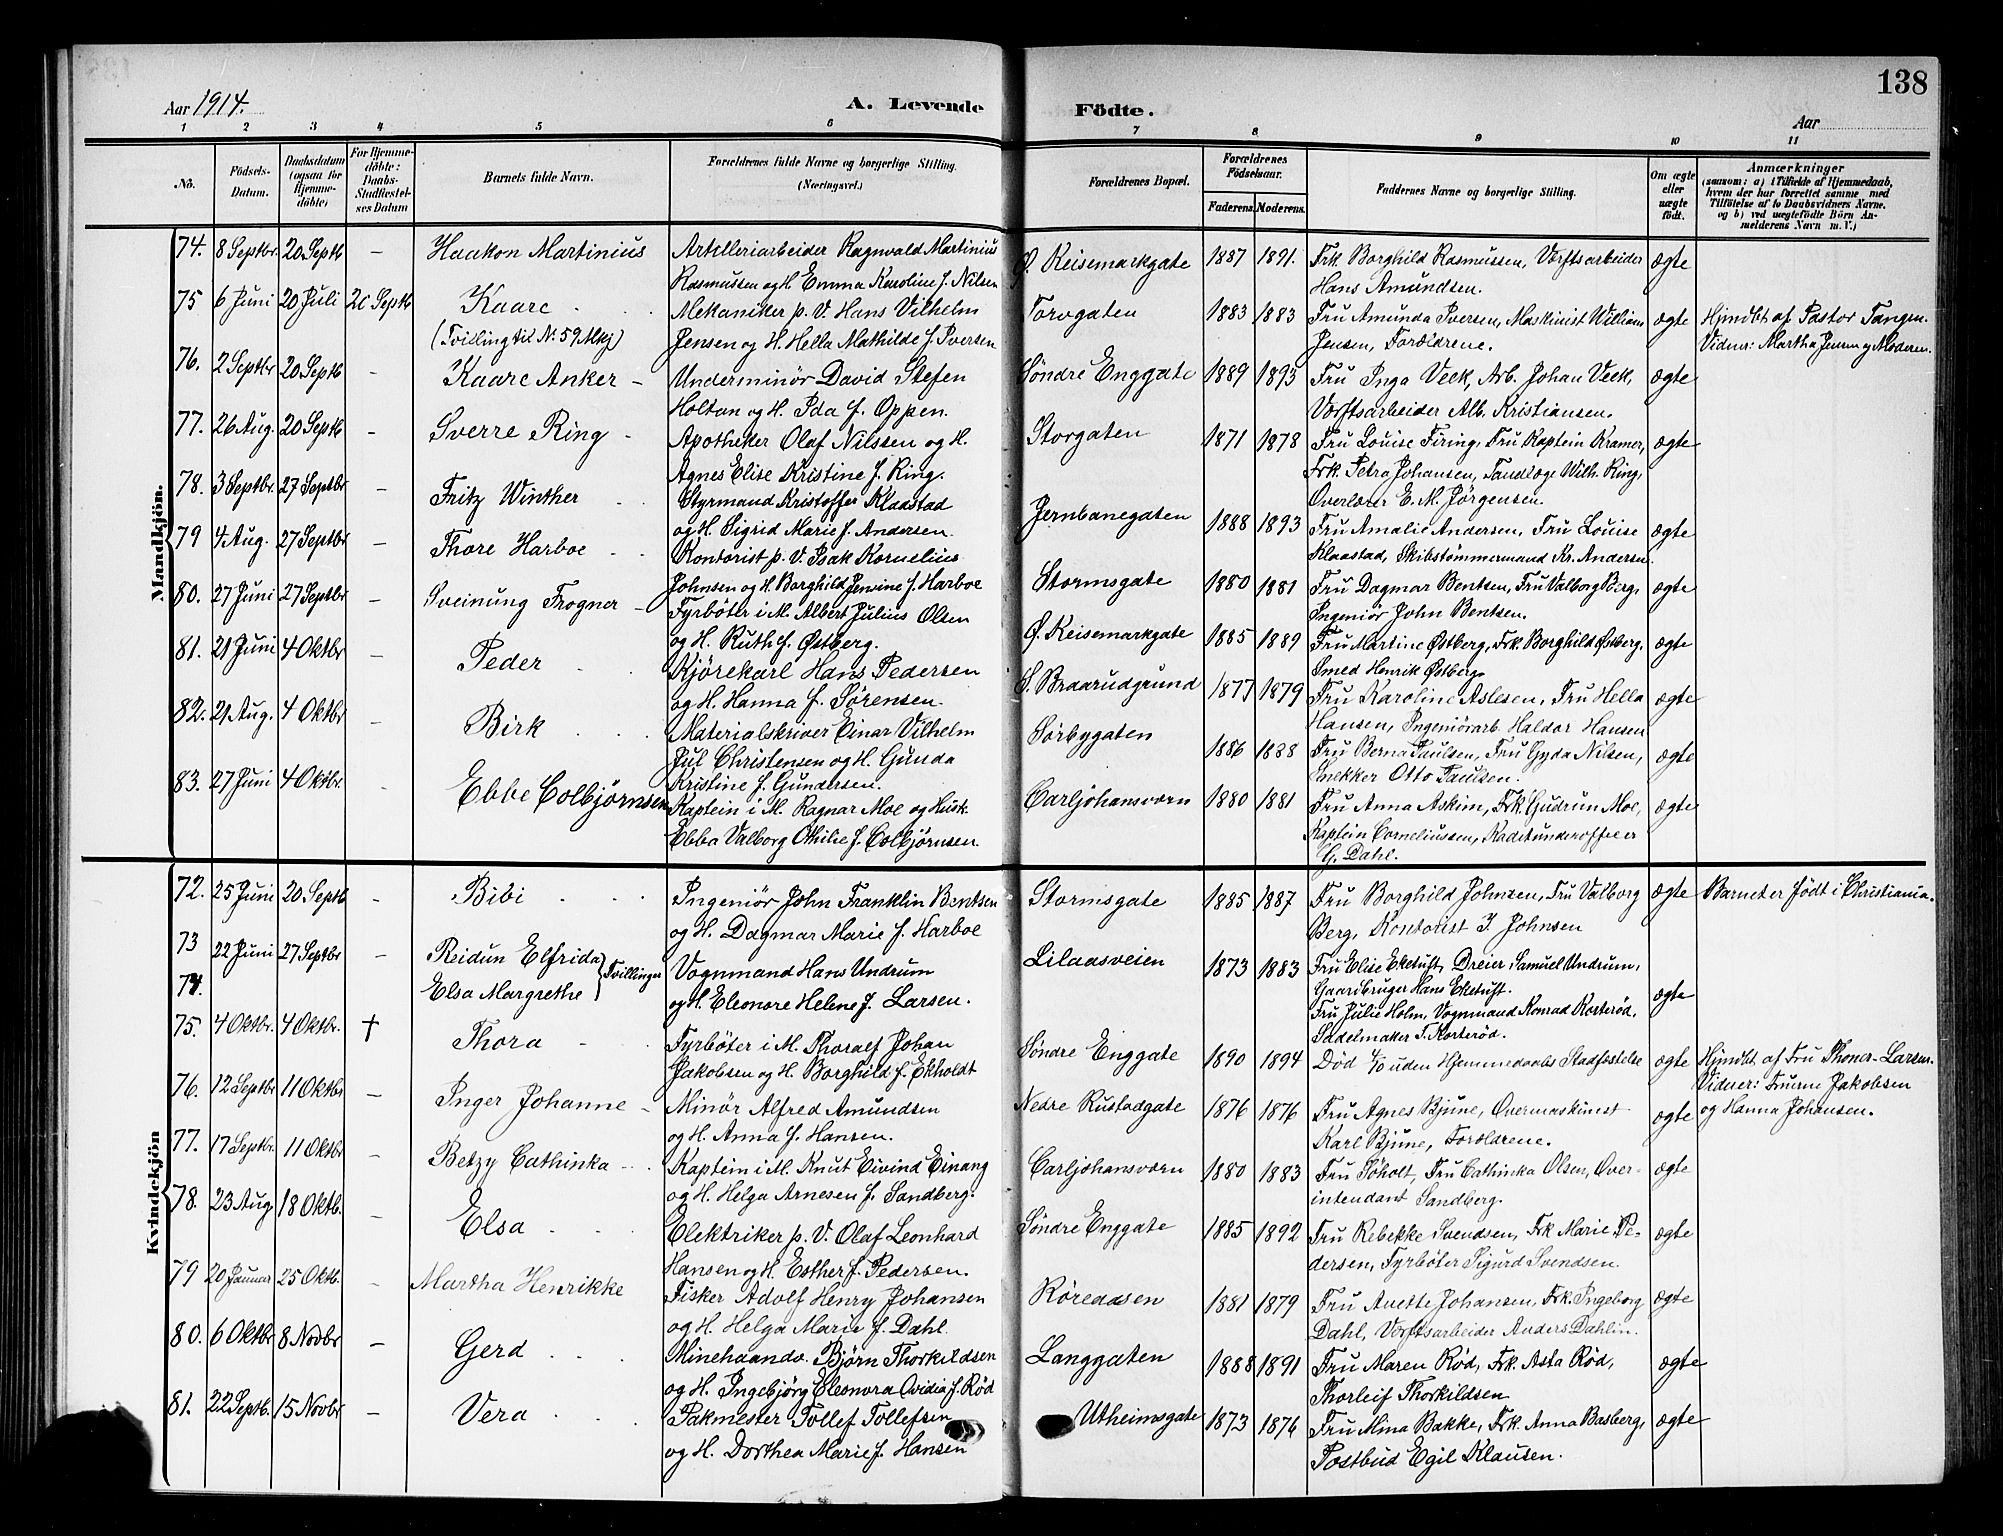 138
Aar 1914.
A. Levende Födte.
Aar
1 2 3 4 5 6 7 8 9 10 11
No.
Födsels-Datum.
Daabsdatum (ogsaa for Hjemmedöbte)
For Hjemmedöbte: Daabs-Stadfæstelses Datum
Barnets fulde Navn.
Forældrenes fulde Navne og borgerlige Stilling. (Næringsvei.)
Forældrenes Bopæl.
Forældrenes Födselsaar.
Faderens. Moderens.
Faddernes Navne og borgerlige Stilling.
Om ægte eller uægte födt.
Anmærkninger
(saasom: a) i Tilfælde af Hjemmedaab, hvem der har forrettet samme med Tilföielse af to Daabsvidners Navne, og b) ved uægtefödte Börn Anmelderens Navn m. V.)
Mandkjön.
74. 8 Septbr. 20 Septb — Haakon Martinius
Artilleriarbeider Ragnvald Martinius
Rasmussen og H. Emma Karoline f. Nilsen
Ø. Keisemarkgate 1887 1891.
Frk. Borghild Rasmussen, Værftsarbeider
Hans Amundsen.
ægte
75 6 Juni 20 Juli 20 Septb Kaare
(Tvilling til N. 59 Mkj)
Mekaniker p. V. Hans Vilhelm
Jensen og H. Hella Mathilde f. Iversen
Torvgaten 1883 1883
Fru Amunda Iversen, Maskinist William
Jensen, Forældrene.
ægte
Hjmdbt af Pastor Tangen.
Vidner: Martha Jensen og Moderen.
76. 2 Septbr 20 Septb - Kaare Anker —
Underminör David Stefen
Holtan og H. Ida f. Oppen.
Søndre Enggate 1889 1893
Fru Inga Veek, Arb. Johan Veek,
Værftsarbeider Alb. Kristiansen.
ægte
77. 26 Aug. 20 Septb - Sverre Ring -
Apotheker Olaf Nilssen og H.
Agnes Elise Kristine f. Ring.
Storgaten 1871 1878
Fru Louise Firing, Fru Kaptein Kramer,
Frk. Petra Johansen, Tandlæge Wilh. Ring,
Overlærer E. M. Jørgensen.
ægte
78. 3 Septbr. 27 Septbr - Fritz Winther
Styrmand Kristoffer Klaastad
og H. Sigrid Marie f. Andersen.
Jernbanegaten 1888 1893
Fru Amalie Andersen, Fru Louise
Klaastad, Skibstømmermand Kr. Andersen.
ægte
79 4 Aug. 27 Septbr - Thore Harboe
Kontorist p. V. Isak Kornelius
Johnsen og H. Borghild Jenvine f. Harboe
Stormsgate 1880 1881
Fru Dagmar Bentsen, Fru Valborg Berg,
Ingeniör John Bentsen.
ægte
80. 27 Juni 27 Septbr — Sveinung Frogner —
Fyrböter i M. Albert Julius Olsen
og H. Ruth f. Østberg.
Ø. Keisemarkgate 1885 1889
Fru Martine Østberg, Frk. Borghild Østberg,
Smed Henrik Østberg.
ægte
81. 21 Juni 4 Oktbr — Peder
Kjörekarl Hans Pedersen
og H. Hanna f. Sørensen.
S. Braarudgrund 1877 1879
Fru Karoline Aslesen, Fru Hella
Hansen, Ingeniörarb. Haldor Hansen
ægte
82. 21 Aug. 4 Oktbr - Birk
Materialskriver Einar Vilhelm
Jul Christensen og H. Gunda
Kristine f. Gundersen.
Sørbygaten 1886 1888
Fru Berna Paulsen, Fru Gyda Nilsen,
Snekker Otto Paulsen.
ægte
83. 27 Juni 4 Oktbr. Ebbe Colbjörnsen
Kaptein i M. Ragnar Moe og Hust.
Ebba Valborg Othilie f. Colbjörnsen.
Carljohansværn 1880 1881
Fru Anna Askim, Frk. Gudrun Moe,
Kaptein Corneliussen, Kadetunderofficer
G. Dahl.
ægte
Kvindekjön
72. 25 Juni 20 Septb - Bibi
Ingeniör John Franklin Bentsen
og H. Dagmar Marie f. Harboe
Stormsgate 1885 1887
Fru Borghild Johnsen, Fru Valborg
Berg, Kontorist I Johnsen
ægte
Barnet er født i Christiania.
73 22 Juni 27 Septbr - Reidun Elfrida
74. Elsa Margrethe
Tvillinger
Vognmand Hans Undrum
og H. Eleonore Helene f. Larsen.
Lilaasveien 1873 1883
Fru Elise Eketuft, Dreier Samuel Undrum,
Gaardbruger Hans Eketuft.
Fru Julie Holm, Vognmand Konrad Korterød,
Sadelmaker T. Korterød.
ægte
75. 4 Oktbr. 4 Oktbr. † Thora
Fyrböter i M. Thoralf Johan
Jakobsen og H. Borghild f. Ekholdt
Søndre Enggate 1890 1894
Död 4/10 uden Hjemmedaabs Stadfæstelse
ægte
Hjmdbt. af Fru Thoner-Larsen.
Vidner: Fruerne Jakobsen
og Hanna Johansen.
76. 12 Septbr 11 Oktbr — Inger Johanne —
Minör Alfred Amundsen
og H. Anna f. Hansen.
Nedre Rustadgate 1876 1876
Fru Agnes Bjune, Overmaskinist
Karl Bjune, Forældrene.
ægte
77. 17 Septbr. 11 Oktbr - Betzy Cathinka
Kaptein i M. Knut Eivind Einang
og H. Helga Arnesen f. Sandberg.
Carljohansværn 1880 1883
Fru Søholt, Fru Cathinka Olsen, Over-
intendant Sandberg.
ægte
78. 23 Aug 18 Oktb. — Elsa
Elektriker p. V. Olaf Leonhard
Hansen og H. Esther f. Pedersen.
Søndre Enggate 1885 1892
Fru Rebekke Svendsen, Frk Marie Pe-
dersen, Fyrböter Sigurd Svendsen.
ægte
79 20 Januar 25 Oktb. - Martha Henrikke
Fisker Adolf Henry Johansen
og H. Helga Marie f. Dahl
Røreaasen 1881 1879
Fru Anette Johansen, Frk. Ingeborg
Dahl, Værftsarbeider Anders Dahlin.
ægte
80. 6 Oktbr 8 Novbr — Gerd
Minehaandv. Bjørn Thorkildsen
og H. Ingebjörg Eleonora Ovidia f. Rød
Langgaten 1888 1891
Fru Maren Rød, Frk. Asta Rød,
Thorleif Thorkildsen
ægte
81. 22 Septb. 15 Novbr — Vera
Pakmester Tollef Tollefsen
og H. Dorthea Marie f. Hansen
Utheimsgate 1873 1876
Fru Mina Bakke, Frk. Anna Basberg,
Postbud Egil Klausen.
ægte